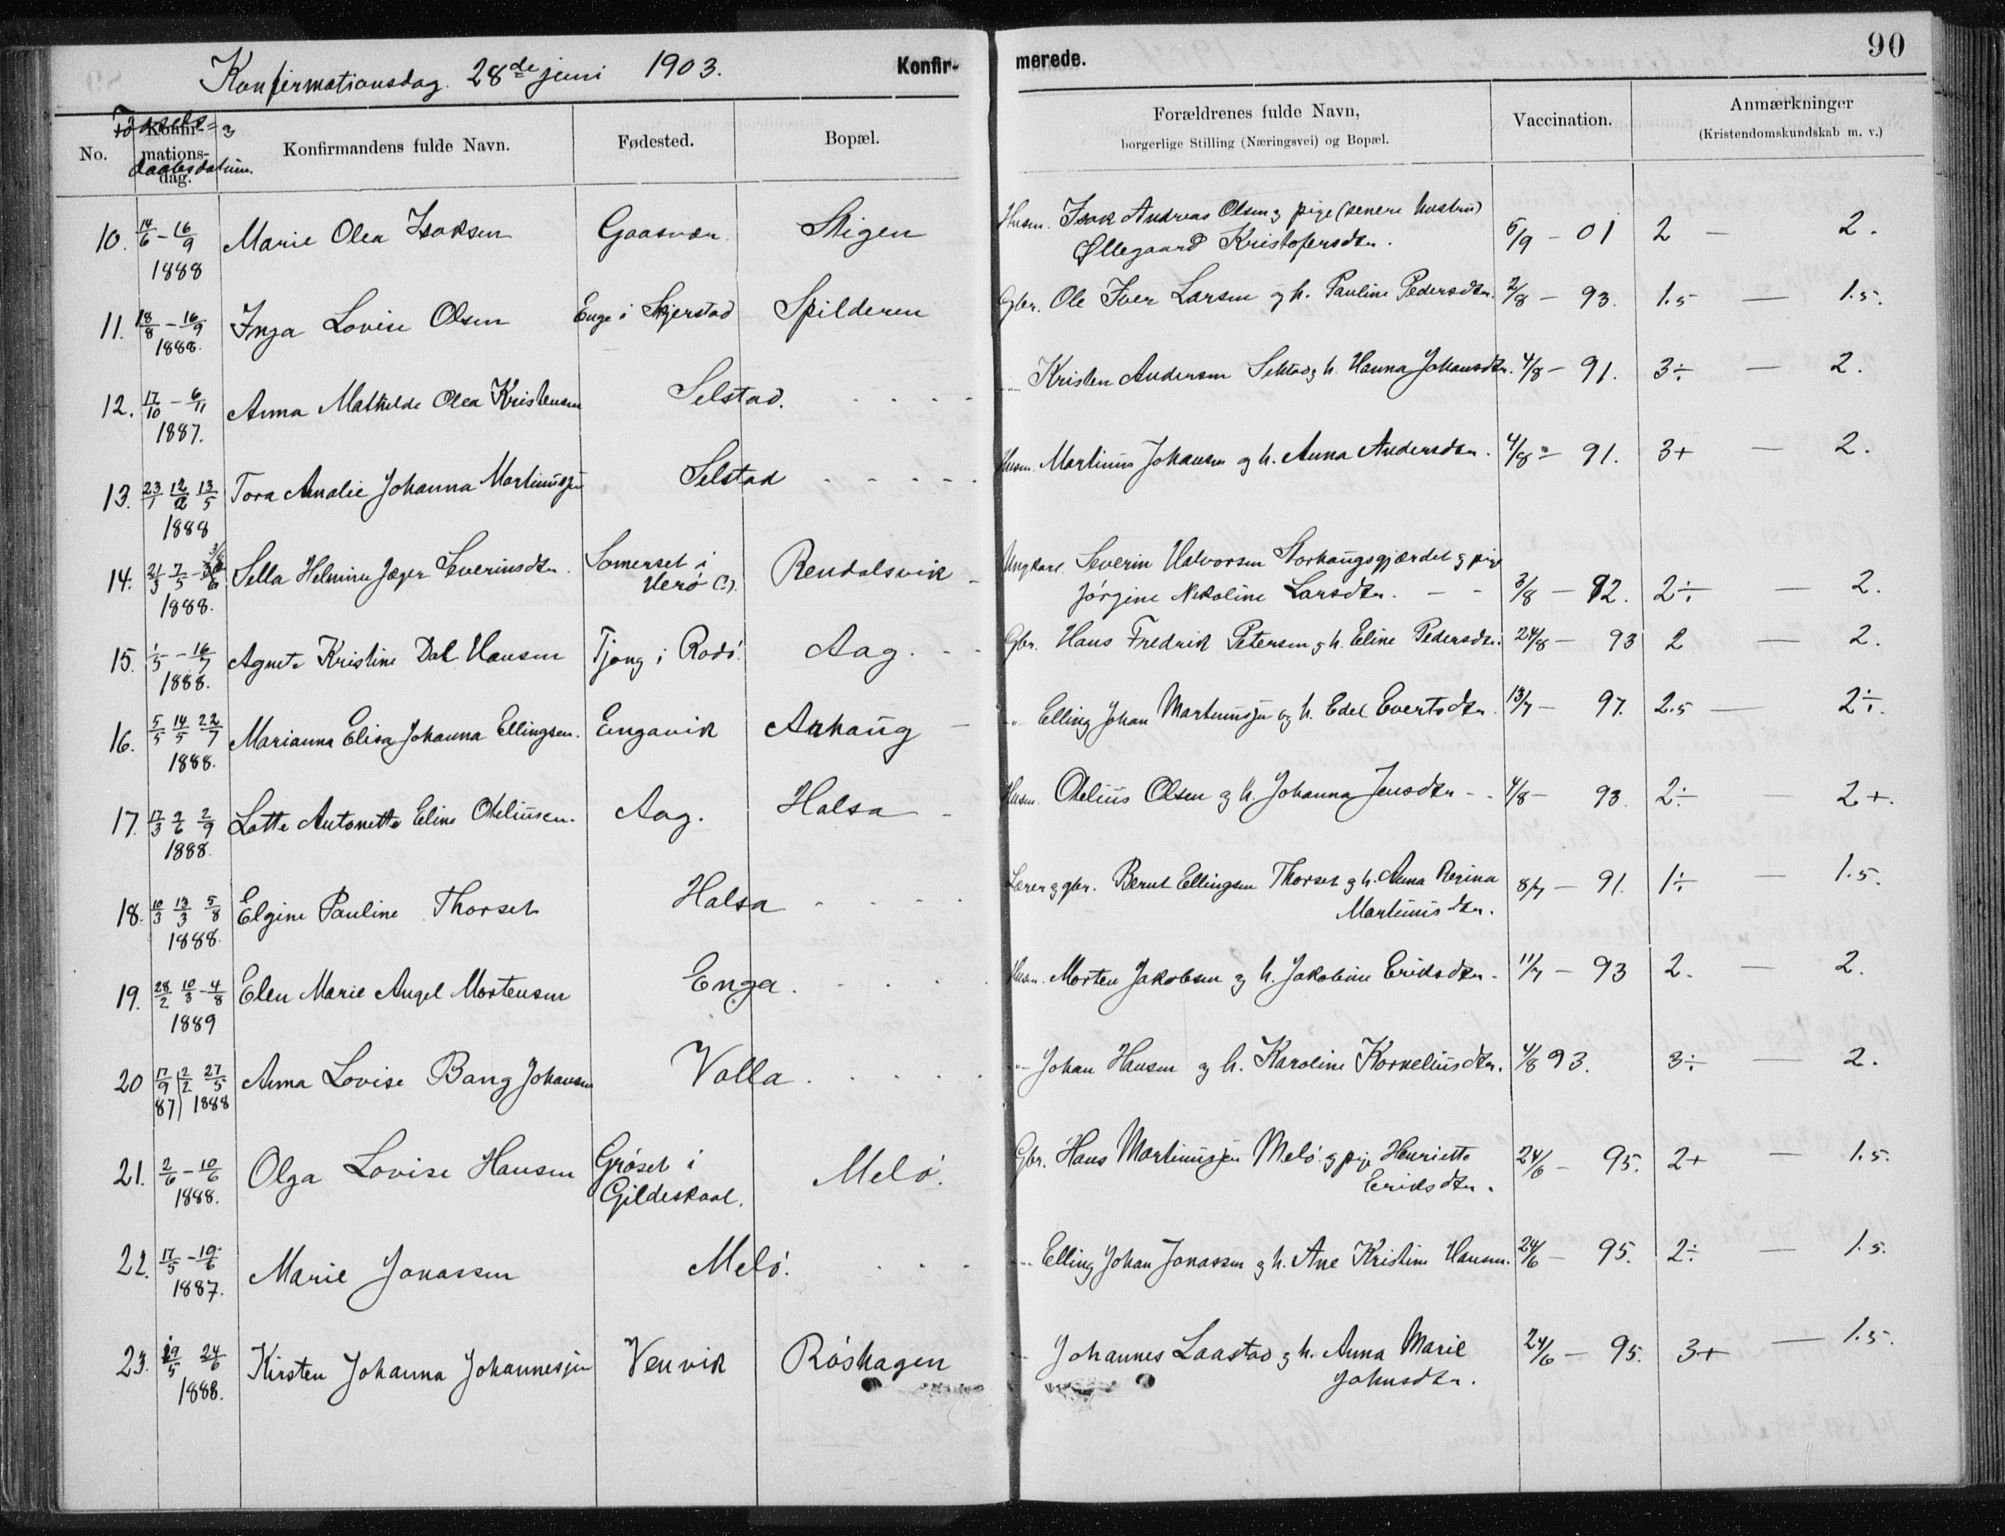 Konfirmationsdag 28de juni 1903. Konfir- merede. 90
No. Konfir-mations-dag. Fødsels- & daabsdatum. Konfirmandens fulde Navn. Fødested. Bopæl. Forældrenes fulde Navn, borgerlige Stilling (Næringsvei) og Bopæl. Vaccination. Anmærkninger (Kristendomskundskab m. v.)
10. 14/6 - 16/9 Marie Olea Isaksen Gaasvær Stigen Husm. Isak Andreas Olsen og pige (senere hustru)
1888 Øllegaard Kristofersdtr. 5/9 - 01 2 — 2.
11. 18/8 - 16/9 Inga Lovise Olsen Enge i Skjerstad Spilderen Gbr. Ole Iver Larsen og h. Pauline Pedersdtr. 2/8 - 93. 1.5 — 1.5.
1888.
12. 17/10 - 6/11 Anna Mathilde Olea Kristensen Selstad. " Kristen Andersen Selstad og h. Hanna Johansdtr. 4/8 - 91. 3÷ — 2.
1887.
13. 23/1 12/2 13/5 Tora Amalie Johanna Martinusjen Selstad Husm. Martinus Johansen og h. Anna Andersdtr. 4/8 - 91. 3+ — 2.
1888
14. 21/3 7/5 - 3/6 Sella Helmine Jæger Severinsdtr. Somerset i Rendalsvik Ungkarl Severin Halvorsen Storhaugsgjærdet og pige
1888. Herø (?). Jørgine Nikoline Larsdtr. - - 3/8 - 92. 2÷ — 2.
15. 1/5 - 16/7 Agnete Kristine Dal Hansen Tjong i Rødø. Aag. Gbr. Hans Fredrik Petersen og h. Eline Pedersdtr. 24/8 - 93 2 — 2.
1888.
16. 5/5 14/5 22/7 Marianna Elisa Johanna Ellingsen. Engavik Aahaug " Elling Johan Martinusjen og h. Edel Evertsdtr. 13/7 - 97. 2.5 — 2÷.
1888.
17. 17/3 2/6 2/9 Lotte Antonette Eline Oteliusen. Aag. Halsa Husm. Otelius Olsen og h. Johanna Jensdtr - - 4/8 - 93. 2÷ — 2+.
1888.
18. 10/3 13/3 5/8 Elgine Pauline Thorset Halsa Lærer og gbr. Bernt Ellingsen Thorset og h. Anna Regina 8/7 - 91. 1÷ — 1.5.
1888. Martinusdtr.
19. 28/2 10/3 - 4/8 Elen Marie Angel Mortensen Enga. Husm. Morten Jakobsen og h. Jakobine Eriksdtr. 11/7 - 93 2. — 2.
1889
20 17/9 2/2 27/5 Anna Lovise Bang Johansen Valla. " Johan Hansen og h. Karoline Korneliusdtr. 4/8 93. 3÷ — 2.
87 1888
21. 2/6 - 10/6 Olga Lovise Hansen Grøset i Melø. Gbr. Hans Martinusjen Melø. og pige Henriette 24/6 - 95. 2+ — 1.5.
1888. Gildeskaal. Eriksdtr.
22. 17/5 - 19/6 Marie Jonassen Melø. " Elling Johan Jonassen og h. Ane Kristine Hansen. 24/6 - 95. 2÷ — 1.5.
1887.
23. 29/5 24/6 Kirsten Johanna Johannesjen Venvik Røshagen " Johannes Laastad og h. Anna Marie 24/6 - 95. 3+ — 1.5.
1888. Johnsdtr.